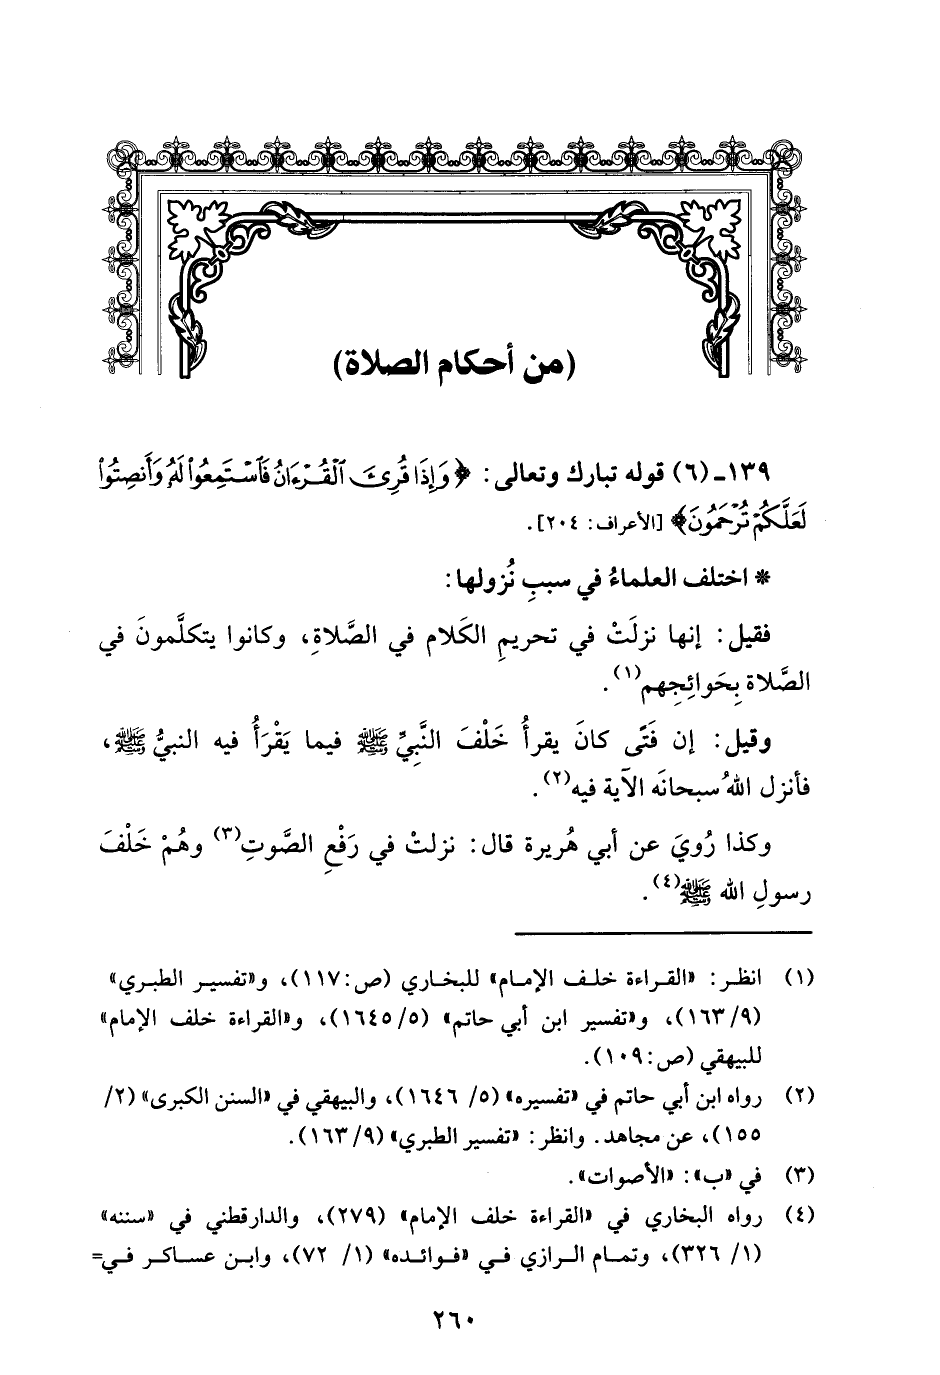 (من أحكام الصلاة)
١٣٩ـ (٦) قوله تبارك وتعالى: ﴿وَإِذَا قُرِئَ الْقُرْءَانُ فَاسْتَمِعُوا لَهُ وَأَنصِتُوا
لَعَلَّكُمْ تُرْحَمُونَ﴾ [الأعراف: ٢٠٤].
* اختلف العلماءُ في سببِ نُزولها:
فقيل: إنها نزلَتْ في تحريمِ الكَلام في الصَّلاةِ، وكانوا يتكلَّمونَ في
الصَّلاة بِحَوائِجِهم(١).
وقيل: إن فَتًى كانَ يقرأُ خَلْفَ النَّبِيِّ ﷺ فيما يَقْرَأُ فيه النبيُّ ﷺ،
فأنزل اللهُ سبحانَه الآية فيه(٢).
وكذا رُويَ عن أبي هُريرة قال: نزلتْ في رَفْعِ الصَّوتِ(٣) وهُمْ خَلْفَ
رسولِ الله ﷺ(٤).
(١) انظر: «القراءة خلف الإمام» للبخاري (ص:١١٧)، و«تفسير الطبري»
(٩/ ١٦٣)، و«تفسير ابن أبي حاتم» (٥/ ١٦٤٥)، و«القراءة خلف الإمام»
للبيهقي (ص:١٠٩).
(٢) رواه ابن أبي حاتم في «تفسيره» (٥/ ١٦٤٦)، والبيهقي في «السنن الكبرى» (٢/
١٥٥)، عن مجاهد. وانظر: «تفسير الطبري» (٩/ ١٦٣).
(٣) في «ب»: «الأصوات».
(٤) رواه البخاري في «القراءة خلف الإمام» (٢٧٩)، والدارقطني في «سننه»
(١/ ٣٢٦)، وتمام الرازي في «فوائده» (١/ ٧٢)، وابن عساكر في=
٢٦٠